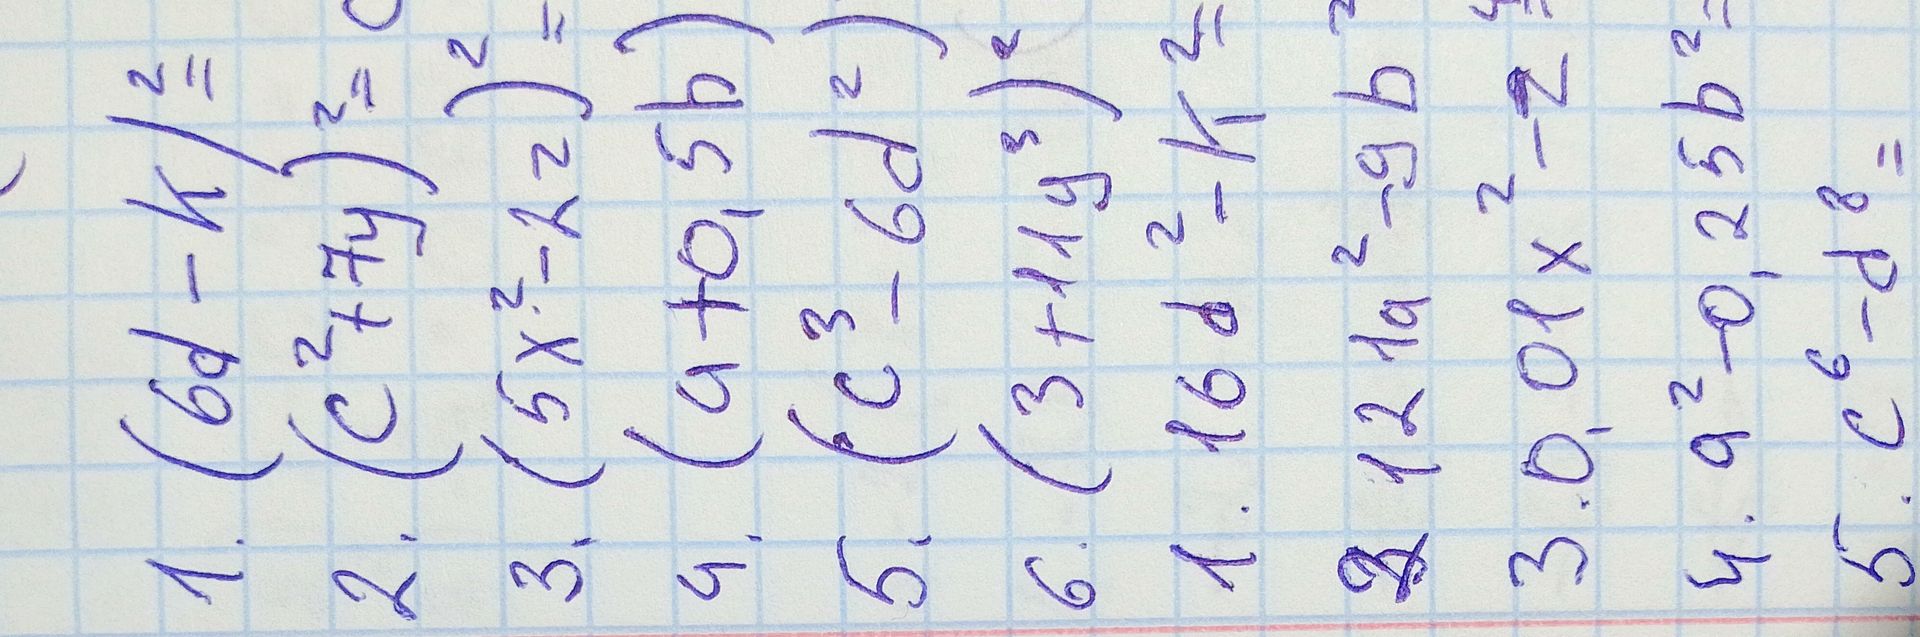 1. (6d - k)²=
2. (c²+7y)²=
3. (5x²-2z)²=
4. (a+0,5b)
5. (c³-6d²)
6. (3+11y³)²
1. 16d²-k²=
2 121a²-9b²
3. 0,01x²-z⁴=
4. a²-0,25b²=
5. c⁶-d⁸=